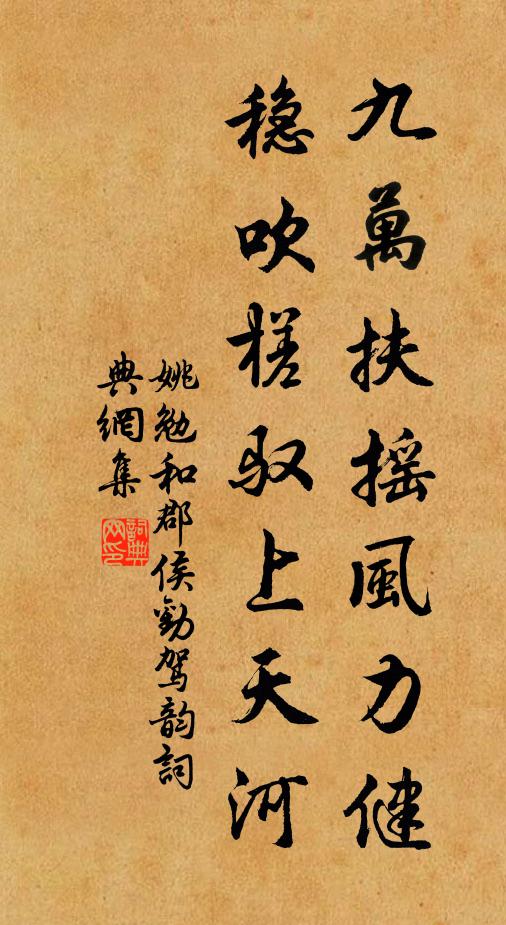 九萬扶摇風力健
穩吹槎馭上天河
姚勉和郡侯勸駕韵詞
典網集
詞典网印